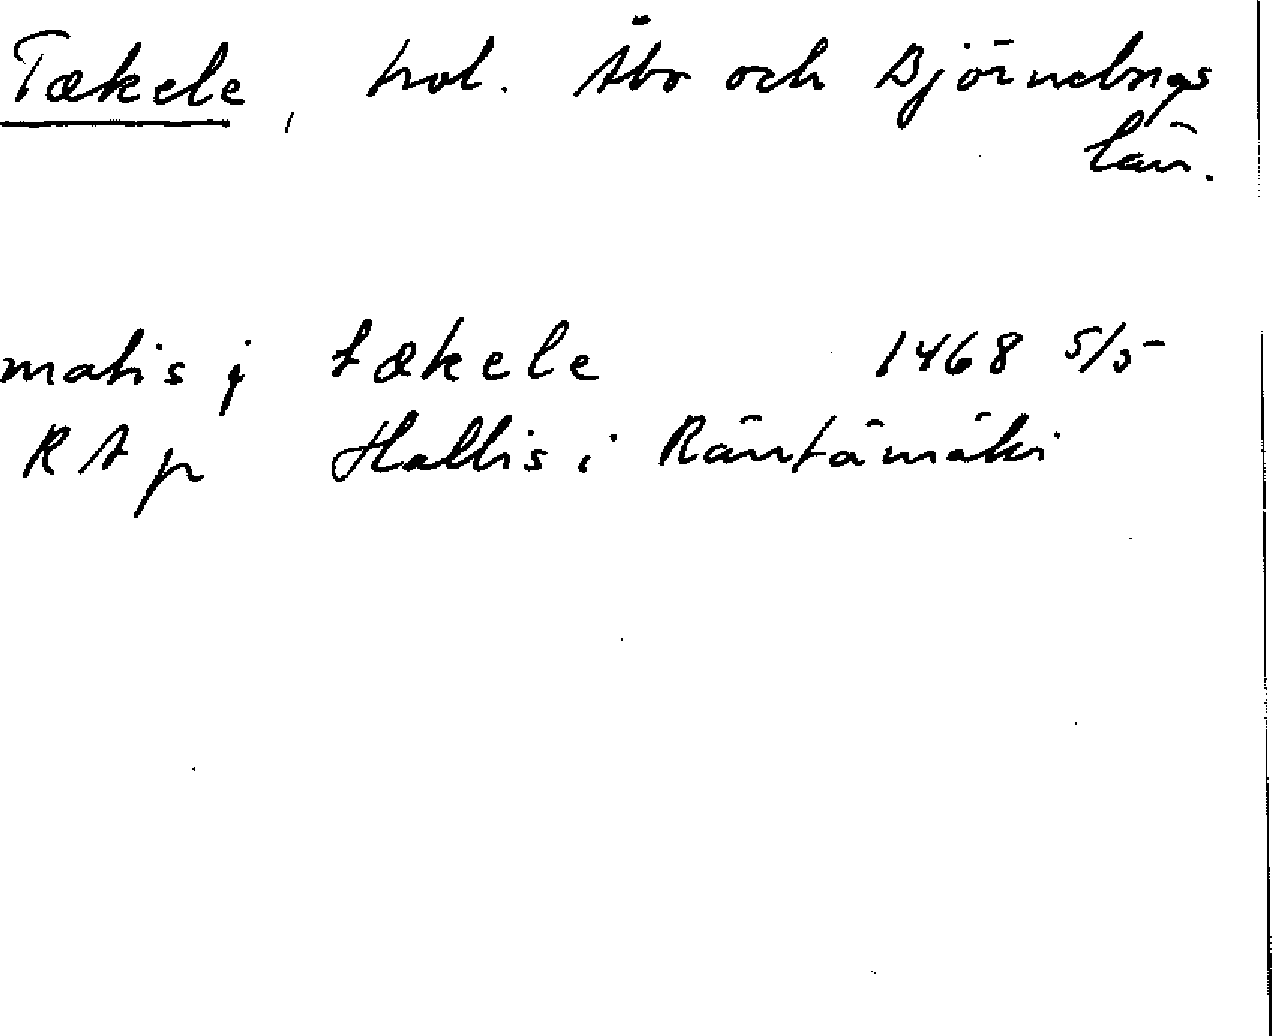 Tækele, trol. Åbo och Björneborgs
län.
matis j tækele 1468 5/5
RAp Hallis i Räntämäki